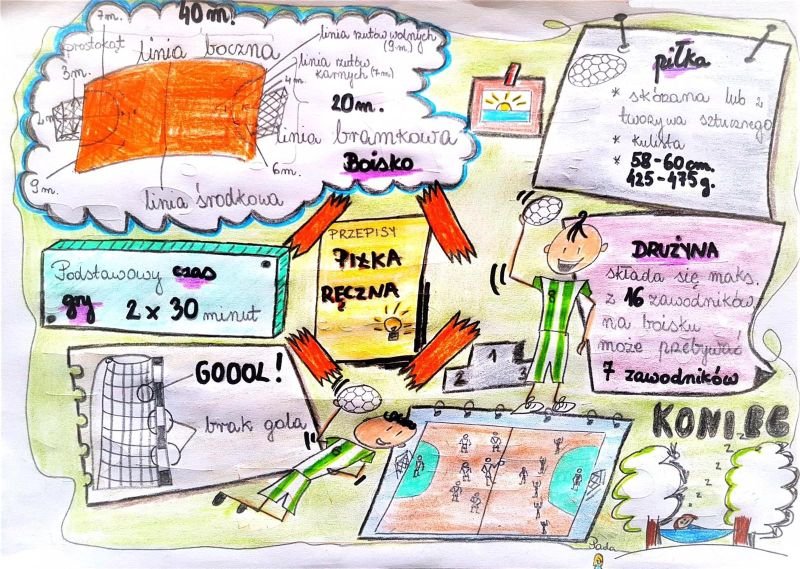 40 m.
7 m.
prostokąt
linia boczna
linia rzutów wolnych
(9 m)
linia rzutów
karnych (7 m)
3 m.
4 m.
2 m.
20 m.
linia bramkowa
Boisko
6 m.
9 m.
linia środkowa
piłka
* skórzana lub z
tworzywa sztucznego
* kulista
* 58-60 cm.
425-475 g.
PRZEPISY
PIŁKA
RĘCZNA
Podstawowy czas
gry 2 x 30 minut
DRUŻYNA
składa się maks.
z 16 zawodników
na boisku
może przebywać
7 zawodników
8
1
2
3
GOOOL!
brak gola
8
KONIEC
z
z
z
z
Pada